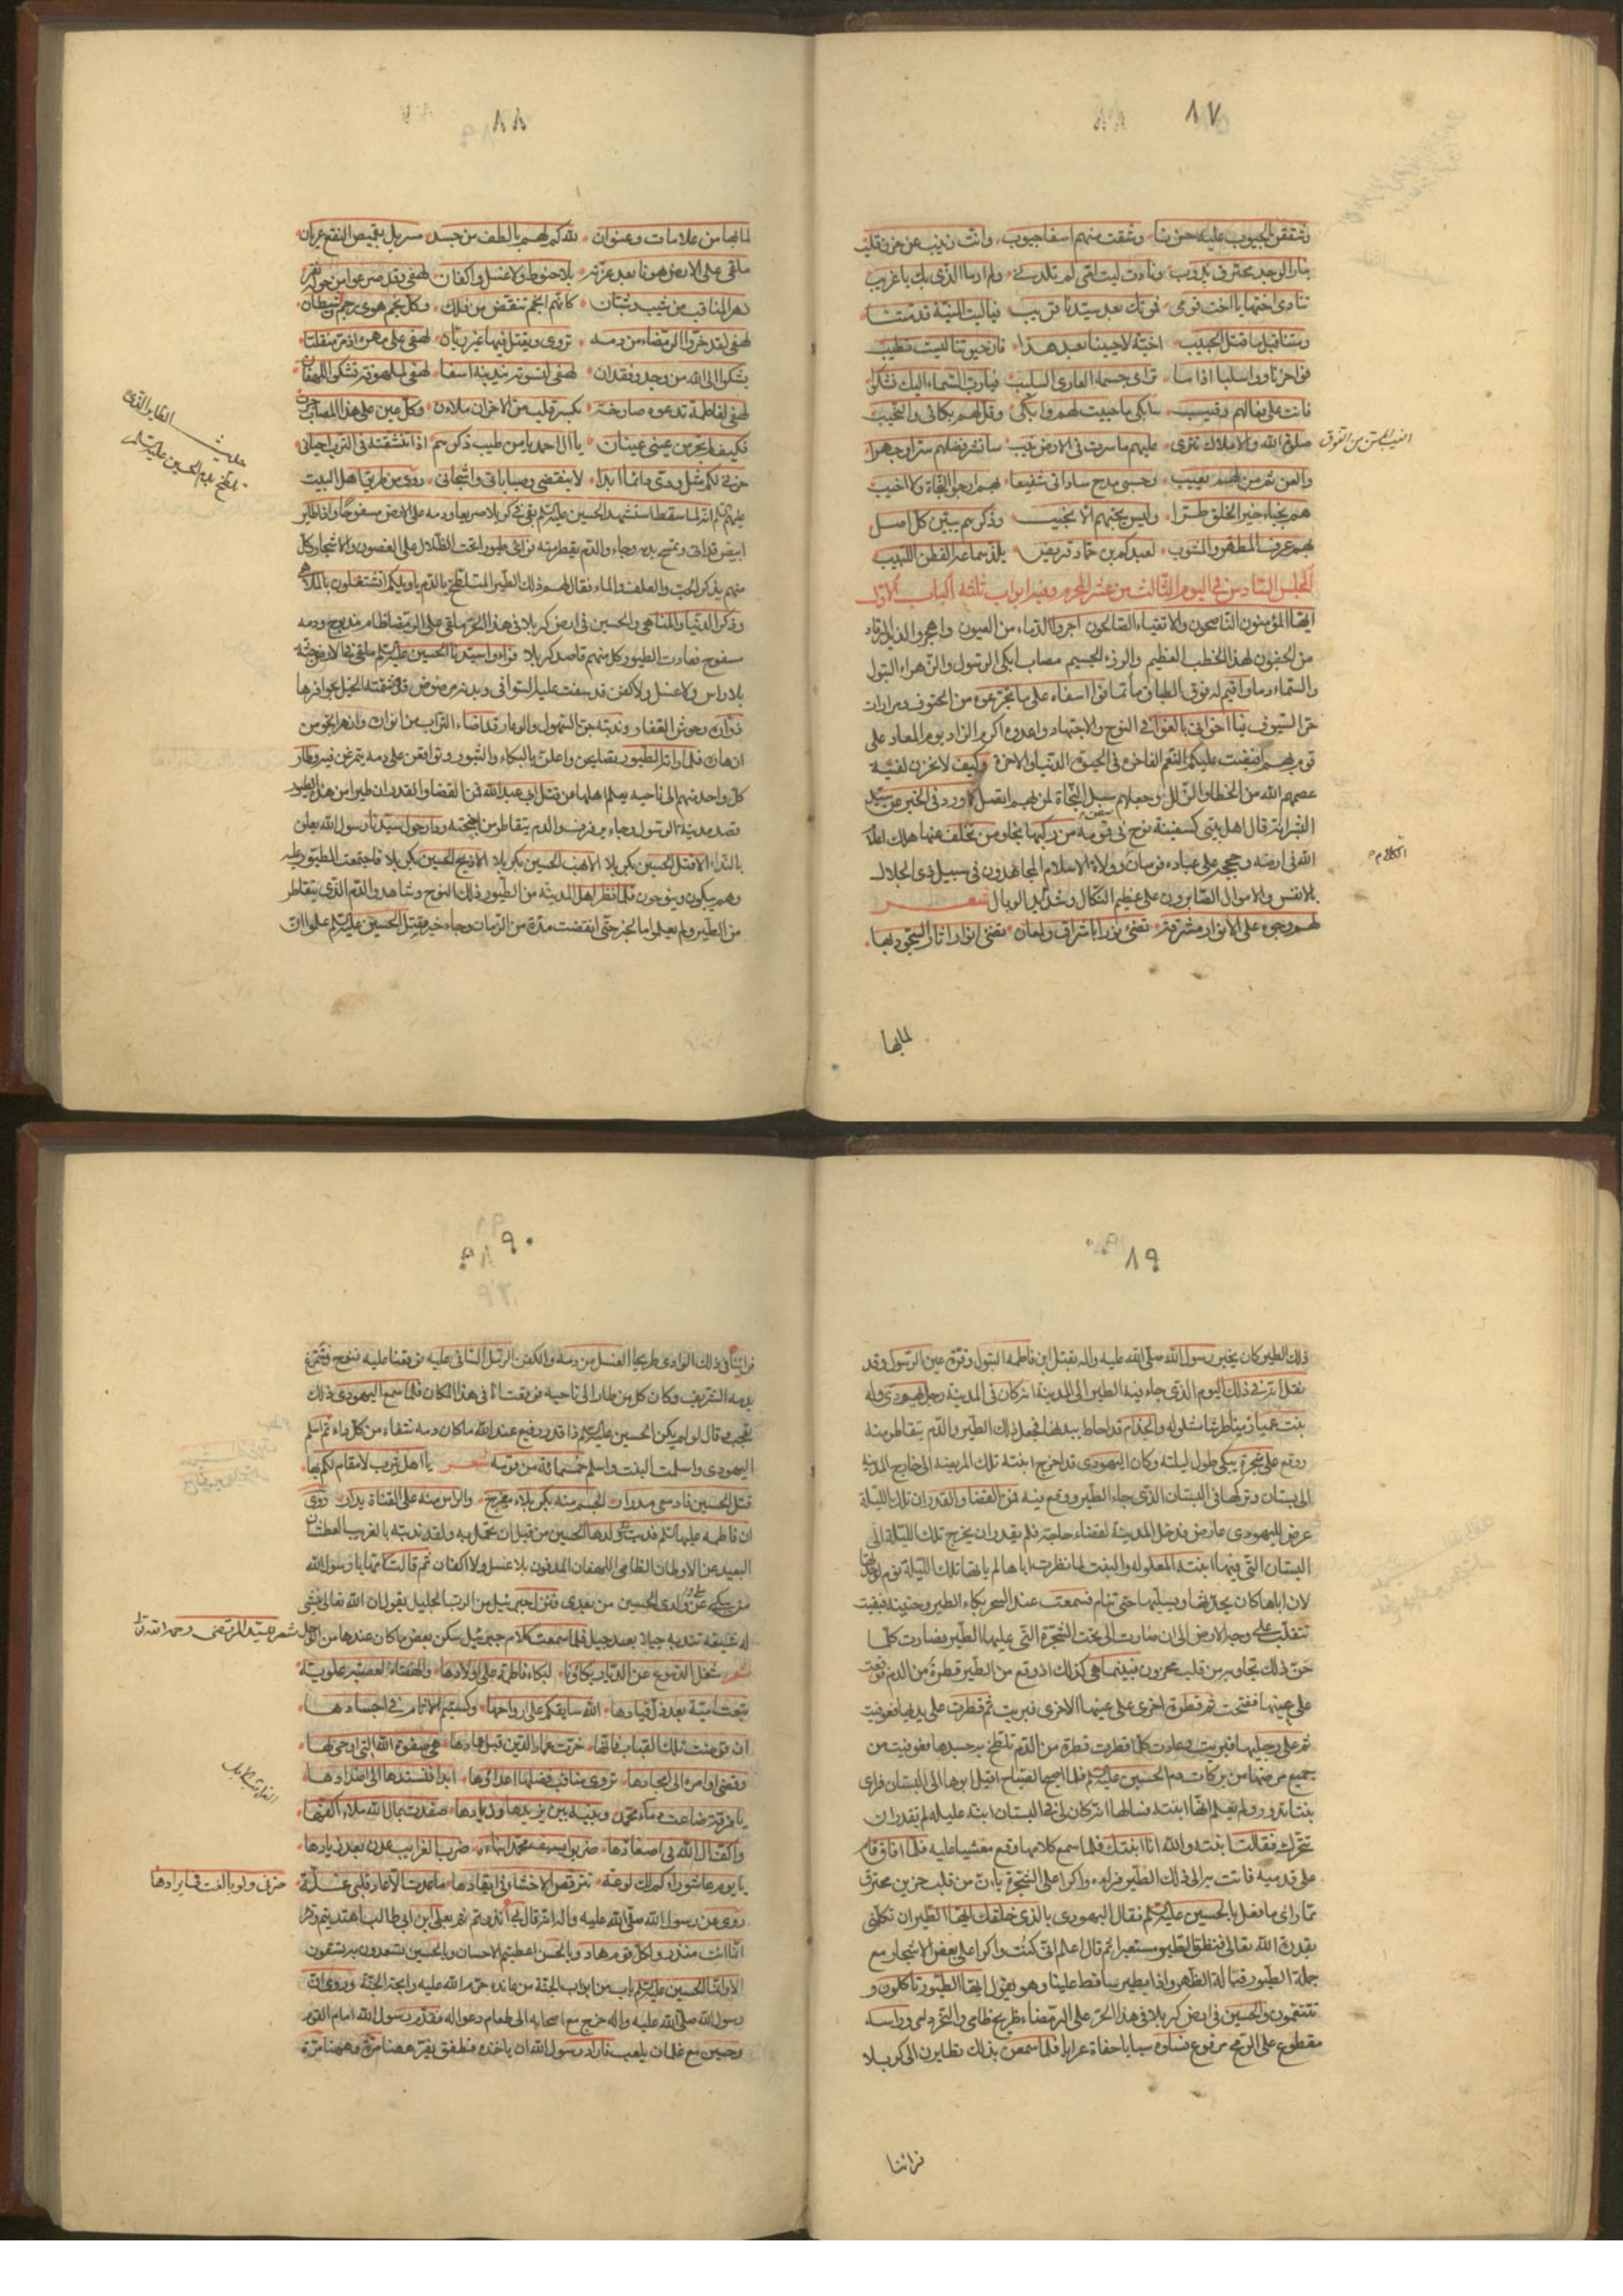 ٨٧
وشققن الجيوب عليه حزنا وشقت منهم اسفا جيوب وانت زينب عن حزن قلب
بنار الوجد محترق يذوب ونادت ليت امي لم تلدني ولم ار ما الذي بك يا غريب
تنادي اختها يا اخت قومي نموتك بعد سيدنا قريب فياليت المنية قدمتنا
ومتنا قبل ما قتل الحبيب اخية لاحيينا بعد هذا
فواحزنا وواسلبا اذا ما تراى جسمه العاري السليب فيارب السماء اليك نشكو
فانت على فعالهم رقيب سابكي ما حييت لهم وابكي وقل لهم بكائي والنحيب
صلوة الله والاملاك تترى عليهم ما سرت في الارض نيب سانشر فضلهم سرا وجهرا
والعن من لهم يعيب وحسبي مدح ساداتي شفيعا بهم ارجو النجاة ولا اخيب
هم نجباء خير الخلق طرا وليس يحبهم الا نجيب وذكرهم يبين كل اصل
بهم عرف المطهر والمشوب لعبدكم بن حماد قريض يلذ سماعه الفطن اللبيب
المجلس السادس في اليوم الثالث من عشر المحرم وفيه ابواب ثلثة الباب الاول
ايها المؤمنون الناصحون والاتقياء الصالحون اجروا الدماء من العيون واهجروا لذيذ الرقاد
من الجفون لهذا الخطب العظيم والرزء الجسيم مصاب ابكى الرسول والزهراء البتول
والسماء دما واقيم له فوق الطباق مأتما فوا اسفاه على ما تجرعوه من الحتوف ومرارات
حر السيوف فيا اخواني بالغوا في النوح والاجتهاد واعدوه اكرم الزاد يوم المعاد على
قوم بهم افيضت عليكم النعم الفاخرة في الحيوة الدنيا والاخرة وكيف لا نحزن لفتية
عصمهم الله من الخطا والزلل وجعلهم سبل النجاة لمن بهم اتصل كما ورد في الخبر عن سيد
البشر انه قال اهل بيتي كسفينة نوح في قومه من ركبها نجا ومن تخلف عنها هلك
الله في ارضه وحججه على عباده فرسان وولاة الاسلام المجاهدون في سبيل ذي الجلال
بالانفس والاموال الصابرون على عظيم النكال وشدايد الوبال شعر
لهم وجوه على الانوار مشرقة تضئ نورا باشراق ولمعان تضئ انوار اثار السجود بها
لما بها
٨٨
لما بها من علامات وعنوان لله كم لهم بالطف من جسد مسربل بقميص النقع عريان
ملقى على الارض هونا بعد عزته بلا حنوط ولا غسل واكفان لهفي وقد صرعوا من حوله
زهر المناقب من شيب وشبان كانهم انجم تنقض من فلك وكل نجم هوى رجم لشيطان
لهفي لقد خر والرمضاء من دمه تروى ويقتل فيها غير ريان لهفي على مهره اذ مر منفلتا
يشكو الى الله من وجد وفقدان لهفي لنسوته تندبنه اسفا لهفي لملهوفة تشكو للهفان
لهفي لفاطمة تدعوه صارخة بكسرة قلب من الاحزان ملاءن وكل عين على هذا المصاب
فكيف لم تجر من عيني عينان يا ال احمد يا من طيب ذكرهم اذا تنشقته في الترب احياني
حزني لكم مثل ودي دائما ابدا لا ينقضي وصباباتي واشجاني روي من طريق اهل البيت
عليهم السلام انه لما استشهد الحسين عليه السلام بقي في كربلا صريعا ودمه على الارض مسفوحا واذا بطاير
ابيض قد اتى وتمسح بدمه وجاء والدم يقطر منه فرأى طيورا تحت الظلال على الغصون والاشجار وكل
منهم يذكر الحب والعلف والماء فقال لهم ذلك الطير المتلطخ بالدم يا ويلكم اتشتغلون بالملاهي
وذكر الدنيا والمناهي والحسين في ارض كربلا في هذا الحر ملقى على الرمضاء ظام مذبوح ودمه
مسفوح فعادت الطيور كل منهم قاصد كربلا فراوا سيدنا الحسين عليه السلام ملقى في الارض جثة
بلا راس ولا غسل ولا كفن قد سفت عليه السوافي وبدنه مرضوض قد هشمته الخيل بحوافرها
زواره وحوش القفار وندبته جن السهول والوعار قد اضاء التراب من انواره وازهر الجو من
ازهاره فلما راته الطيور تصايحن واعلن بالبكاء والثبور وتواقعن على دمه يتمرغن فيه وطار
كل واحد منهم الى ناحيه يعلم اهلها عن قتل ابي عبد الله فمن القضا والقدر ان طيرا من هذه الطيور
قصد مدينة الرسول وجاء يرفرف والدم يتقاطر من اجنحته ودار حول سيدنا رسول الله يعلن
بالنداء الا قتل الحسين بكربلا الا نهب الحسين بكربلا الا ذبح الحسين بكربلا فاجتمعت الطيور عليه
وهم يبكون وينوحون فلما نظر اهل المدينة من الطيور ذلك النوح وشاهدوا الدم الذي يتقاطر
من الطير ولم يعلموا ما الخبر حتى انقضت مدة من الزمان وجاء خبر مقتل الحسين عليه السلام علموا ان
٨٩
ذلك الطير كان يخبر رسول الله صلى الله عليه واله بقتل ابن فاطمة البتول وقرة عين الرسول وقد
نقل انه في ذلك اليوم الذي جاء فيه الطير الى المدينة انه كان في المدينة رجل يهودي وله
بنت عمياء زمناء طرشاء مشلوله والجذام قد احاط ببدنها فجعل ذلك الطير والدم يتقاطر منه
ووقع على شجرة يبكي طول ليلته وكان اليهودي قد اخرج ابنته تلك المريضة الى خارج المدينة
الى بستان وتركها في البستان الذي جاء الطير ووقع فيه فمن القضا والقدر ان تلك الليلة
عرض لليهودي عارض فدخل المدينة لقضاء حاجته فلم يقدر ان يخرج تلك الليلة الى
البستان التي فيها ابنته المعلوله والبنت لما نظرت اباها لم ياتها تلك الليلة لم ياتها نوم لوحدتها
لان اباها كان يحدثها ويسليها حتى تنام فسمعت عند السحر بكاء الطير وحنينه فبقيت
تتقلب على وجه الارض الى ان صارت الى تحت الشجرة التي عليها الطير فصارت كلما
حن ذلك تجاوبه من قلب محزون فبينما هي كذلك اذ وقع من الطير قطرة من الدم فوقعت
على عينها ففتحت ثم قطرة اخرى على عينها الاخرى فبريت ثم قطرت على يديها فعوفيت
ثم على رجليها فبريت وعادت كلما قطرت قطرة من الدم تلطخ به جسدها فعوفيت من
جميع مرضها من بركات دم الحسين عليه السلام فلما اصبح الصباح اقبل ابوها الى البستان فراى
بنتا تدور ولم يعلم انها ابنته فسالها انه كان لي في البستان ابنة عليله لم تقدر ان
تتحرك فقالت ابنته والله انا ابنتك فلما سمع كلامها وقع مغشيا عليه فلما افاق قام
على قدميه فاتت به الى ذلك الطير فراه واكرا على الشجرة يأن من قلب حزين محترق
مما راى ما فعل بالحسين عليه السلام فقال اليهودي بالذي خلقك ايها الطير ان تكلمني
بقدرة الله تعالى فنطق الطير مستعبرا ثم قال اعلم اني كنت واكرا على بعض الاشجار مع
جملة الطيور قبالة الظهر واذا بطير ساقط علينا وهو يقول ايها الطيور تاكلون و
تتنعمون والحسين في ارض كربلا في هذا الحر على الرمضاء طريح ظامي والنحر دامي وراسه
مقطوع على الرمح مرفوع ونساؤه سبايا حفاة عرايا فلما سمعن بذلك تطايرن الى كربلا
فرائنا
٩٠
فرائناه في ذلك الوادي طريحا الغسل من دمه والكفن الرمل السافي عليه فوقعنا عليه ننوح ونتمرغ
بدمه الشريف وكان كل منا طار الى ناحيه فوقعت انا في هذا المكان فلما سمع اليهودي ذلك
تعجب وقال لو لم يكن الحسين عليه السلام ذا قدر رفيع عند الله ما كان دمه شفاء من كل داء ثم اسلم
اليهودي واسلمت البنت واسلم خمسمائة من قومه شعر يا اهل يثرب لا مقام لكم بها
قتل الحسين فادمعي مدرار الجسم منه بكربلاء مضرج والراس منه على القناة يدار روي
ان فاطمة عليها السلام ندبت ولدها الحسين من قبل ان تحمل به ولقد ندبته بالغريب العطشان
البعيد عن الاوطان الظامي اللهفان المدفون بلا غسل ولا اكفان ثم قالت لابيها يا رسول الله
من يبكي على ولدي الحسين من بعدي فنزل جبرئيل من الرب الجليل يقول ان الله تعالى ينشئ
له شيعة تندبه جيلا بعد جيل فلما سمعت كلام جبرئيل سكن بعض ما كان عندها من الوجل
شعر شغل الدموع عن الديار بكاؤنا لبكاء فاطمة على اولادها والهفتاه لعصبة علوية
تبعت امية بعد ذل قيادها الله سابقكم على ارواحها وكسبتم الاثام في اجسادها
ان قوضت تلك القباب فانما خرت عماد الدين قبل عمادها هي صفوة الله التي اوحى لها
وقضى اوامره الى امجادها تروي مناقب فضلها اعداؤها ابدا فتسندها الى اضدادها
يا فرقة ضاعت دماء محمد وبنيه بين يزيدها وزيادها صفدت بمال الله ملاء اكفها
واكف ال الله في اصفادها ضربوا بسيف محمد ابناءه ضرب الغرائب عدن بعد ذيادها
يا يوم عاشوراء كم لك لوعة تترقص الاحشاء في ايقادها ما عدت الا عاد قلبي غلة
حزني ولو بالغت في ايرادها
روي عن رسول الله صلى الله عليه واله انه قال بي انذرتم ثم بعلي ابن ابي طالب اهتديتم وقرا
انما انت منذر ولكل قوم هاد وبالحسن اعطيتم الاحسان وبالحسين تسعدون وبه تشقون
الا وان الحسين عليه السلام باب من ابواب الجنة من عانده حرم الله عليه رايحة الجنة وروي ان
رسول الله صلى الله عليه واله خرج مع اصحابه الى طعام دعوا له فتقدم رسول الله امام القوم
وحسين مع غلمان يلعب فاراد رسول الله ان ياخذه فطفق يفر ههنا مرة وههنا مرة